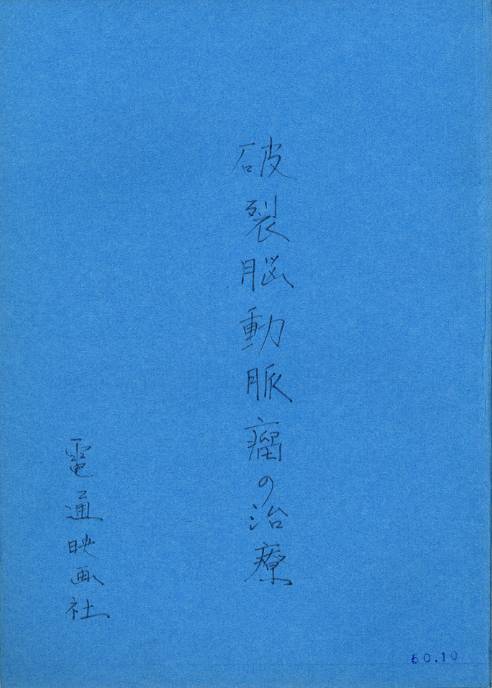 破裂脳動脈瘤の治療
電通映画社
60.10